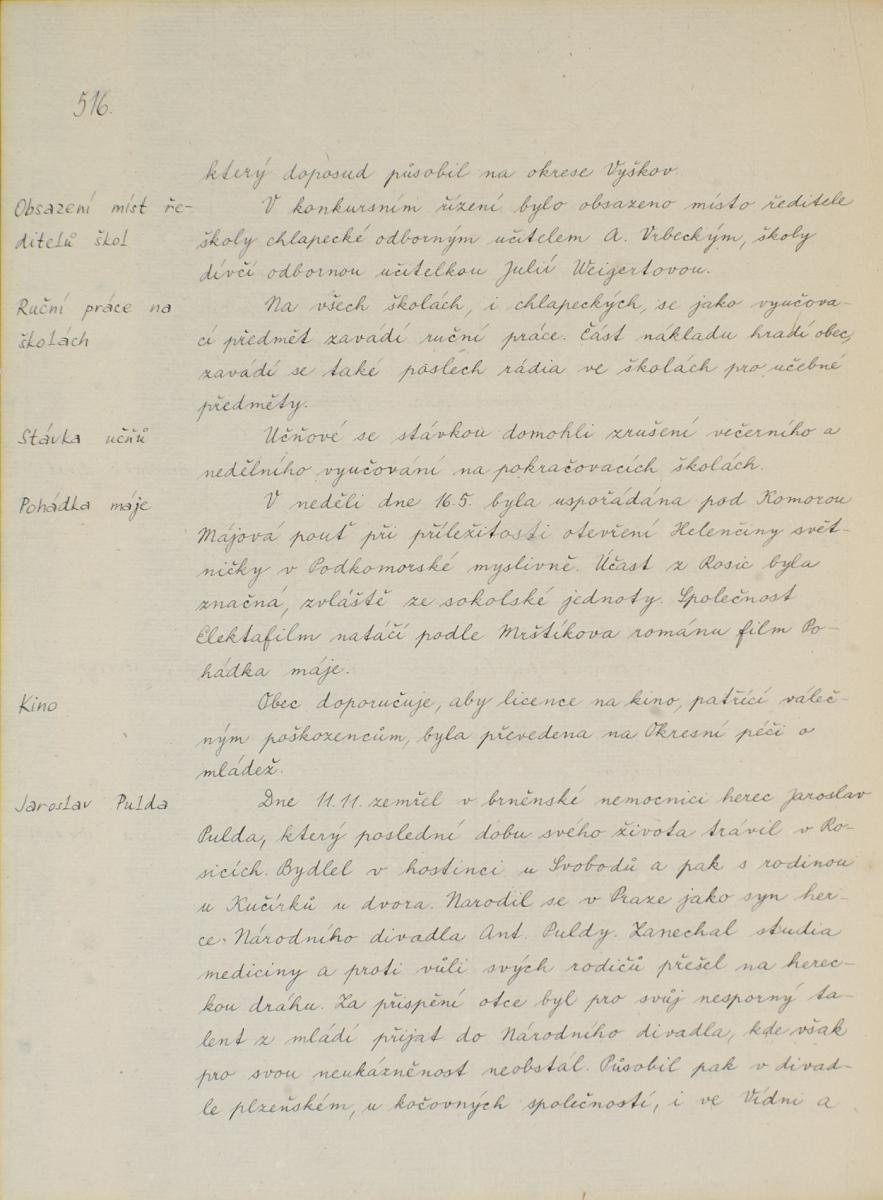 516.
který doposud působil na okrese Vyškov.
Obsazení míst ře-
ditelů škol
V konkursním řízení bylo obsazeno místo ředitele
školy chlapecké odborným učitelem A. Vrbeckým, školy
dívčí odbornou učitelkou Julií Weigertovou.
Ruční práce na
školách
Na všech školách, i chlapeckých, se jako vyučova-
cí předmět zavádí ruční práce. Část nákladu hradí obec,
zavádí se také poslech rádia ve školách pro učebné
předměty.
Stávka učňů
Učňové se stávkou domohli zrušení večerního a
nedělního vyučování na pokračovacích školách.
Pohádka máje
V neděli dne 16.5. byla uspořádána pod Komorou
Májová pouť při příležitosti otevření Helenčiny svět-
ničky v Podkomorské myslivně. Účast z Rosic byla
značná, zvláště ze sokolské jednoty. Společnost
Elektafilm natáčí podle Mrštíkova románu film Po-
hádka máje.
Kino
Obec doporučuje, aby licence na kino, patřící váleč-
ným poškozencům, byla převedena na Okresní péči o
mládež.
Jaroslav Pulda
Dne 11.11. zemřel v brněnské nemocnici herec Jaroslav
Pulda, který poslední dobu svého života trávil v Ro-
sicích. Bydlel v hostinci u Svobodů a pak s rodinou
u Kučírků u dvora. Narodil se v Praze jako syn her-
ce Národního divadla Ant. Puldy. Zanechal studia
mediciny a proti vůli svých rodičů přešel na herec-
kou dráhu. Za přispění otce byl pro svůj nesporný ta-
lent z mládí přijat do Národního divadla, kde však
pro svou neukázněnost neobstál. Působil pak v divad-
le plzeňském, u kočovných společností, i ve Vídni a